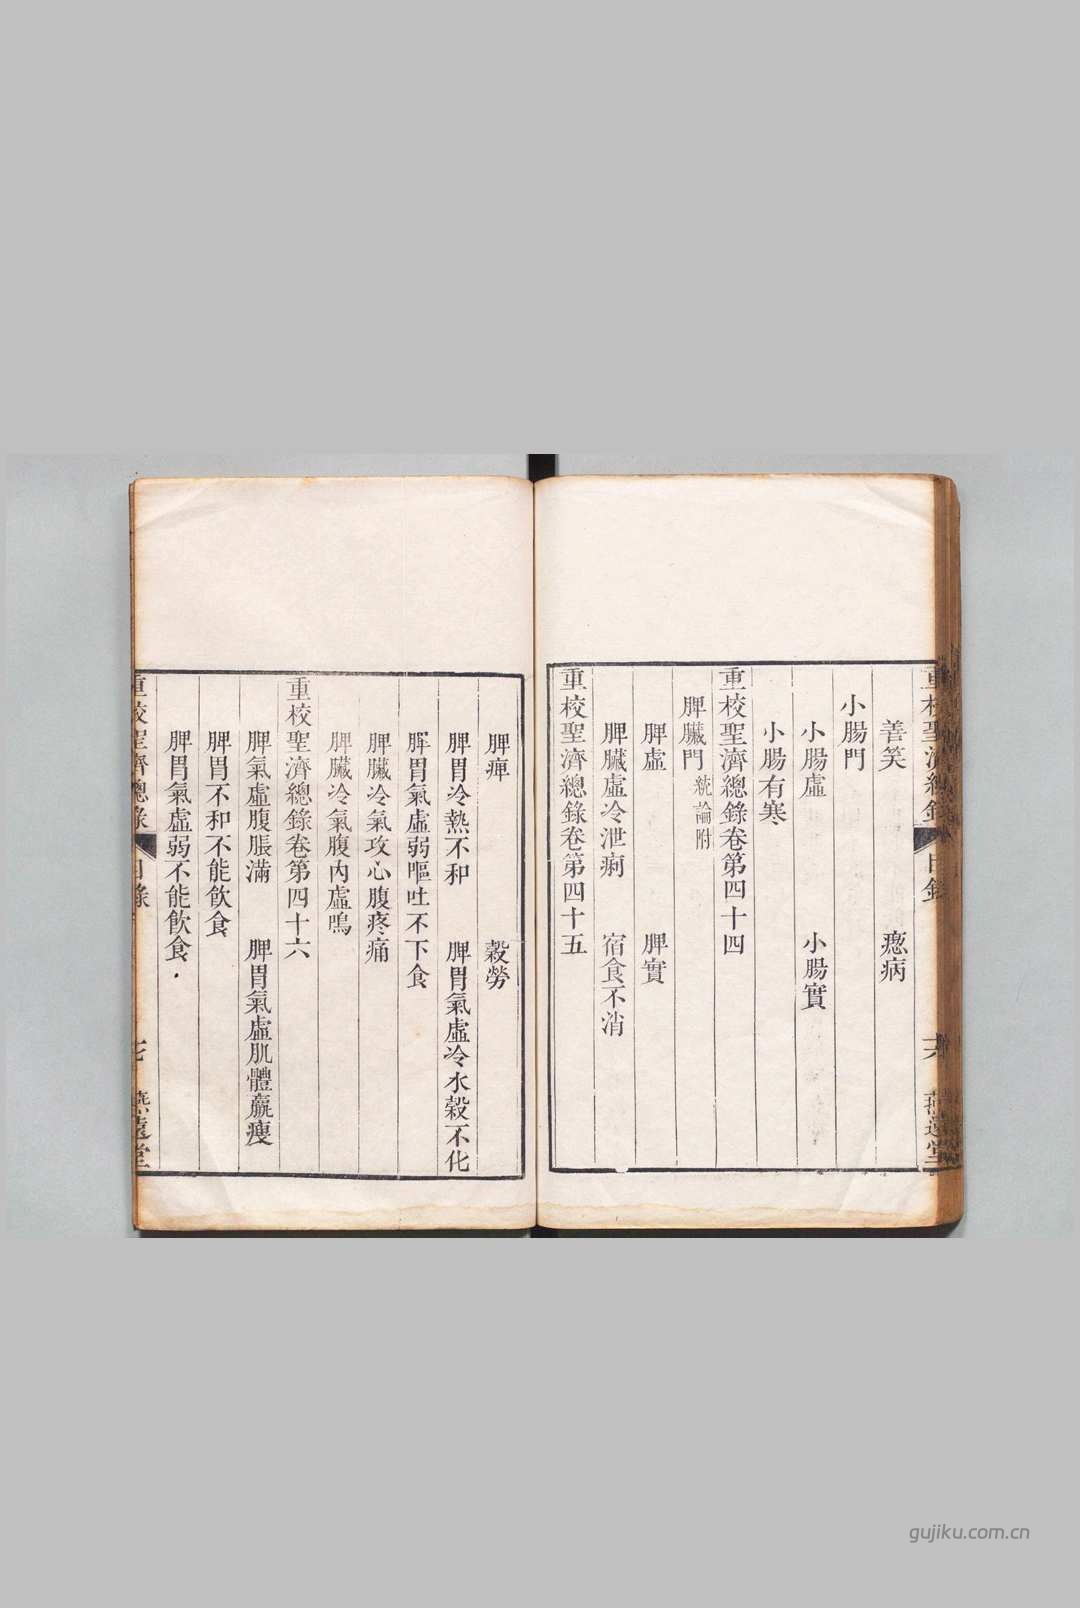 重校聖濟總錄
目錄
善笑　瘛病
小腸門
小腸虛　小腸實
小腸有寒
重校聖濟總錄卷第四十四
脾臟門統論附
脾虛　脾實
脾臟虛冷泄痢　宿食不消
重校聖濟總錄卷第四十五
脾癉　穀勞
脾胃冷熱不和　脾胃氣虛冷水穀不化
脾胃氣虛弱嘔吐不下食
脾臟冷氣攻心腹疼痛
脾臟冷氣腹內虛鳴
重校聖濟總錄卷第四十六
脾氣虛腹脹滿　脾胃氣虛肌體羸瘦
脾胃不和不能飲食
脾胃氣虛弱不能飲食
重校聖濟總錄
目錄
燕遠堂
gujiku.com.cn